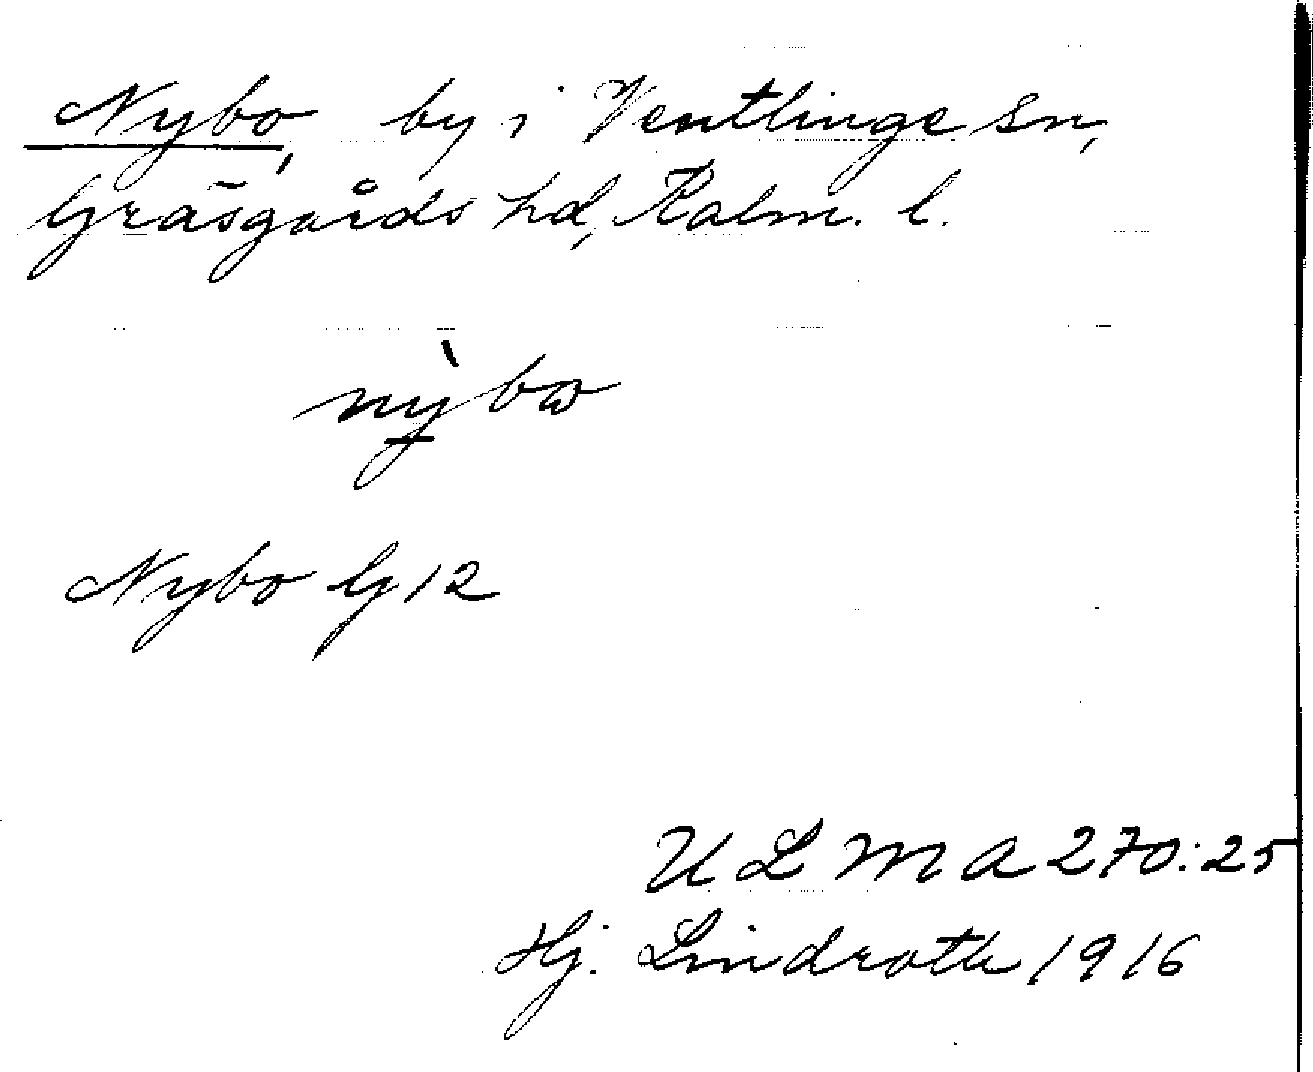 Nybo, by i Ventlinge sn,
Gräsgårds hd, Kalm. l.
nỳ̠bω
Nybo G 12
ULMA 270:25
Hj. Lindroth 1916